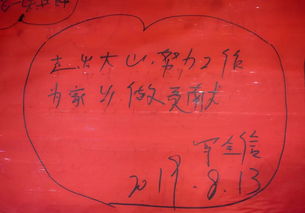 走出大山·努力工作
为家乡做贡献
2019.8.13